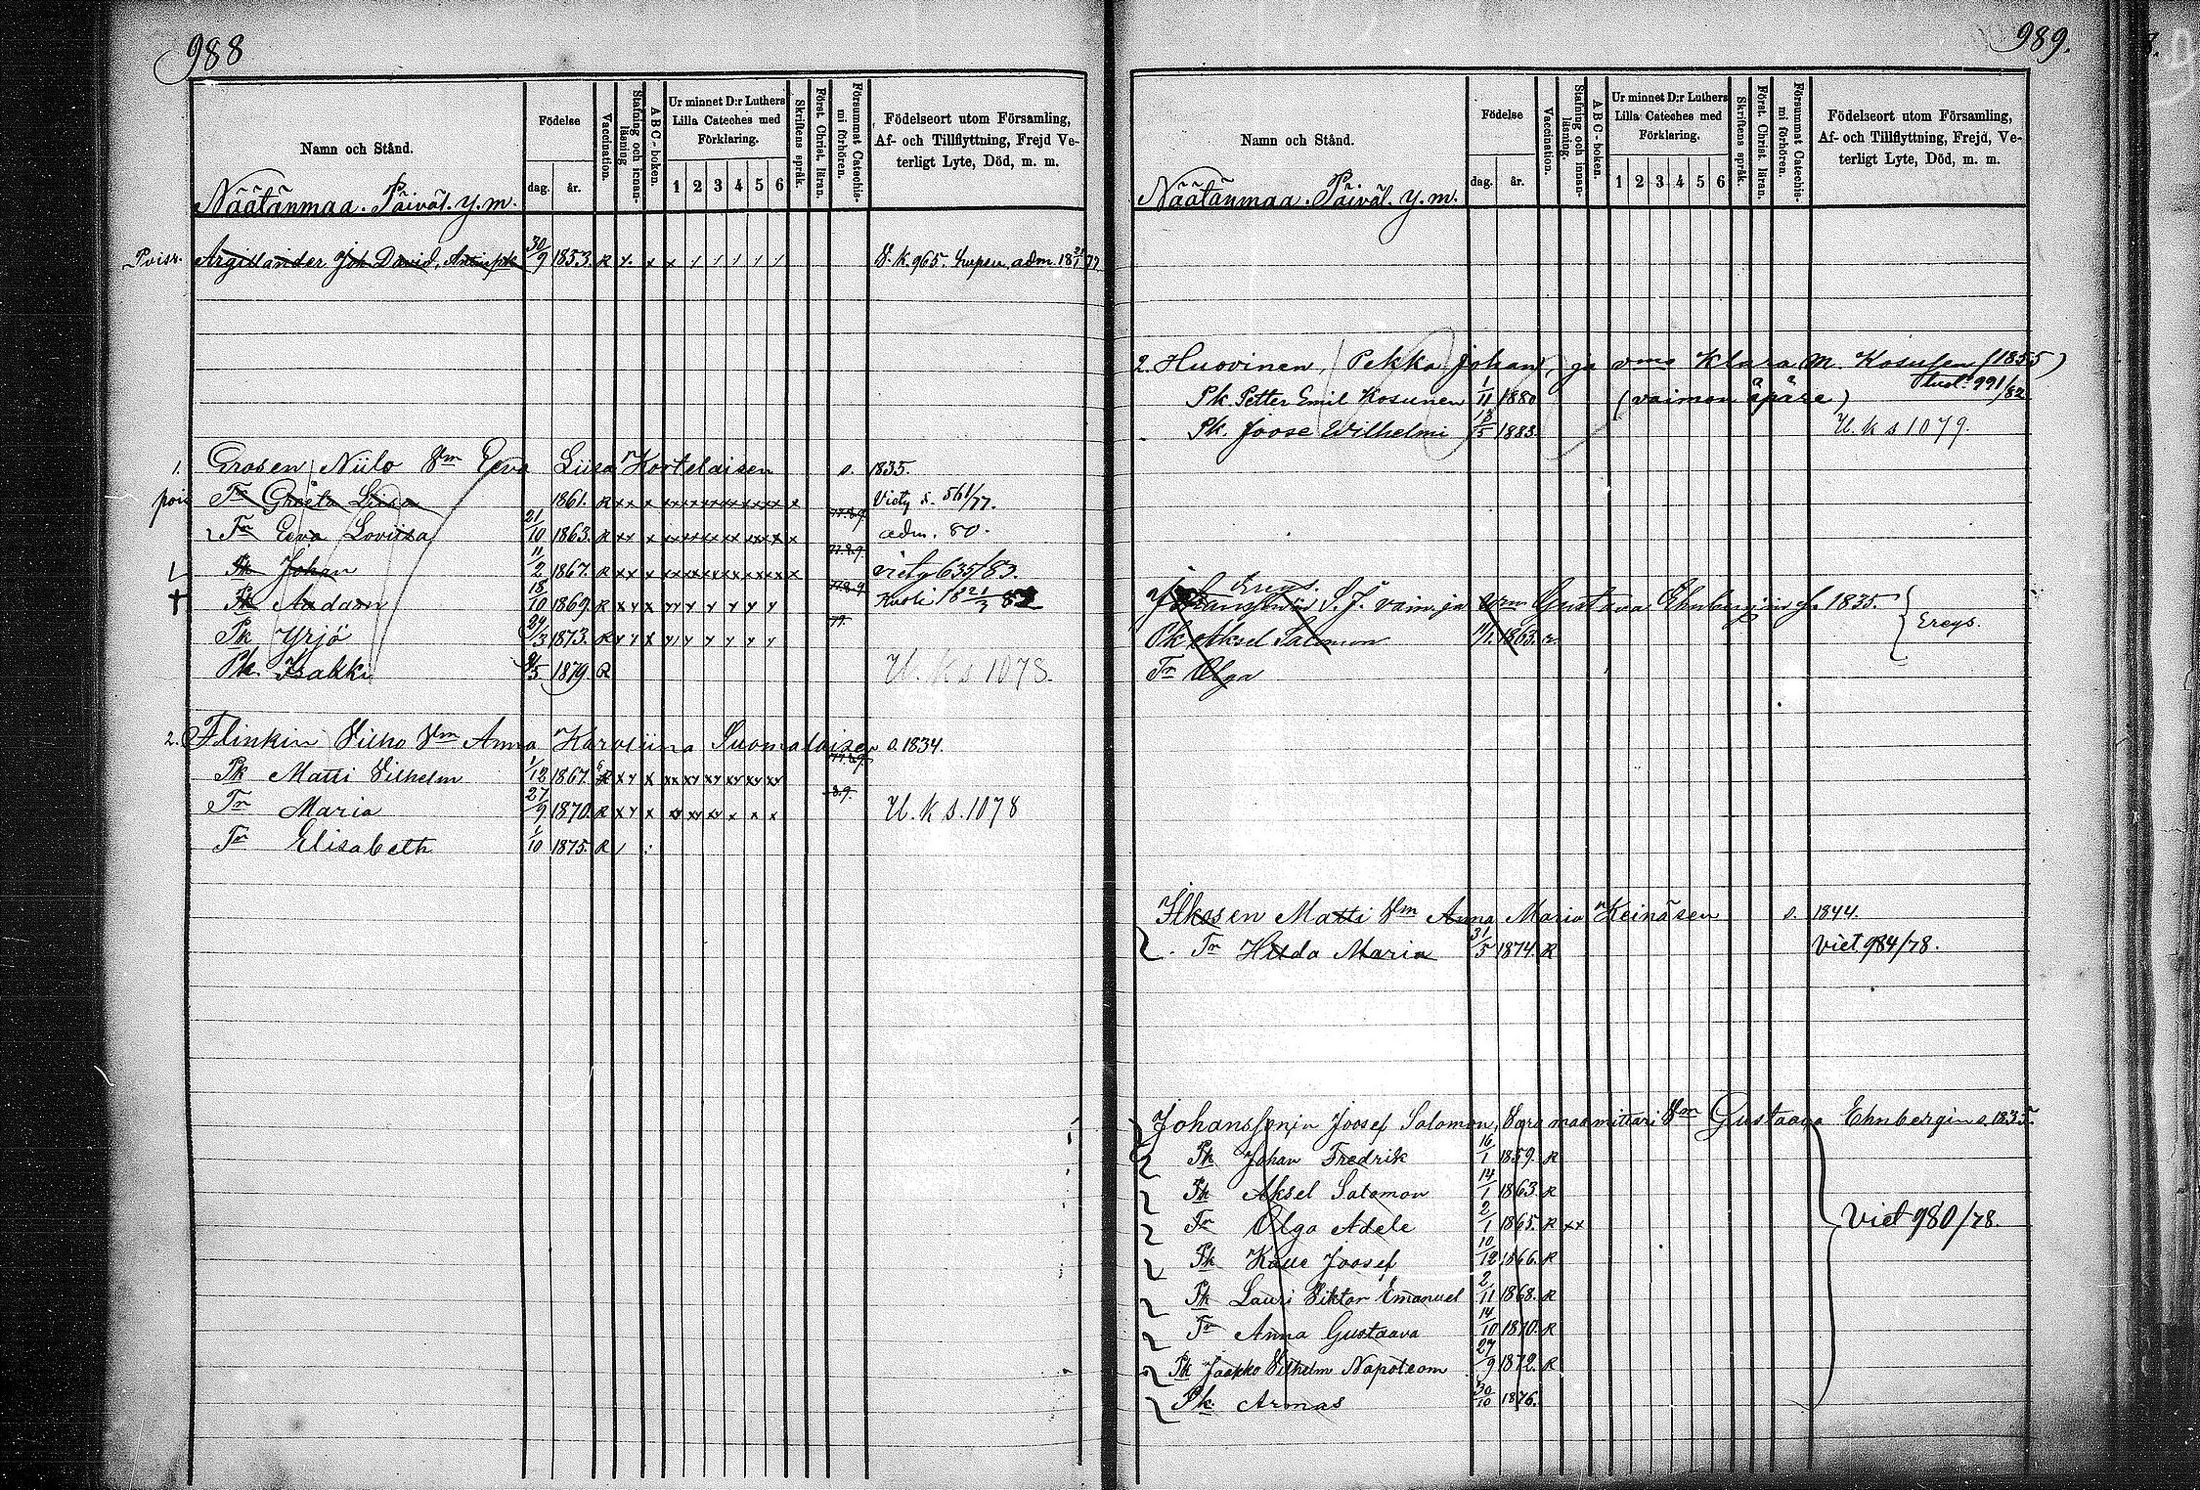 988
Namn och Stånd.
Födelse
dag.
år.
Vaccination.
Stafning och innan-läsning
ABC-boken.
Ur minnet D:r Luthers Lilla Cateches med Förklaring.
1 2 3 4 5 6
Skriftens språk.
Först. Christ. läran.
Försummat Catechismi förhören.
Födelseort utom Församling, Af- och Tillflyttning, Frejd Veterligt Lyte, Död, m. m.
Näätänmaa. Päiväl. y. m.
Argillander Joh David, 30/9 1853. R
V. k. 965. adm. 18 77
1. Grosen Niilo Vm Eeva Liisa Kortelaisen s. 1835.
pois Tr Greeta Liisa 1861. R Viety s. 561/77.
Tr Eeva Loviisa 21/10 1863. R adm. 80.
Pk Johan 11/2 1867. R viety 635/83.
Pk Aadam 18/10 1869. R Kuoli 18 21/3 82
Pk Yrjö 24/3 1873. R
Pk. Isakki 1879. R U. k s 1078.
2. Flinkin Vilho Vm Anna Karoliina Suomalaisen s. 1834.
Pk Matti Vilhelm 1/12 1867. R
Tr Maria 27/9 1870. R U. k s. 1078
Tr Elisabeth 1/10 1875. R
989.
Namn och Stånd.
Födelse
dag.
år.
Vaccination.
Stafning och innan-läsning.
ABC-boken.
Ur minnet D:r Luthers Lilla Cateches med Förklaring.
1 2 3 4 5 6
Skriftens språk.
Först. Christ. läran.
Försummat Catechismi förhören.
Födelseort utom Församling, Af- och Tillflyttning, Frejd, Veterligt Lyte, Död, m. m.
Näätänmaa. Päiväl. y. m.
2. Huovinen, Pekka Johan, ja vmo Klara M. Kosunen (1855)
Pk. Petter Emil Kosunen 1/11 1880 (vaimon äpäre) 991/82
Pk. Joose Wilhelmi 13/5 1883. U. k s 1079.
Ereys.
S. J. vaim. ja Vm Gustava Ehnbergin s. 1835.
Pk Aksel Salomon 1863. Ereys.
Tr Olga
Ilkosen Matti Vm Anna Maria Keinäsen s. 1844.
Tr Hilda Maria 31/5 1874. R Viet 984/78.
Johanssonin Joosef Salomon, Vara maamittari Vm Gustaava Ehnbergin s. 1835.
Pk Johan Fredrik 16/1 1859. R
Pk Aksel Salomon 14/1 1863. R
Tr Olga Adele 2/1 1865. R xx Viet 980/78.
Pk Kaue Joosef 10/12 1866. R
Pk Lauri Viktor Emanuel 2/11 1868. R
Tr Anna Gustaava 14/10 1870. R
Pk Jaakko Vilhelm Napoleom 27/9 1872. R
Pk. Armas 30/10 1876.